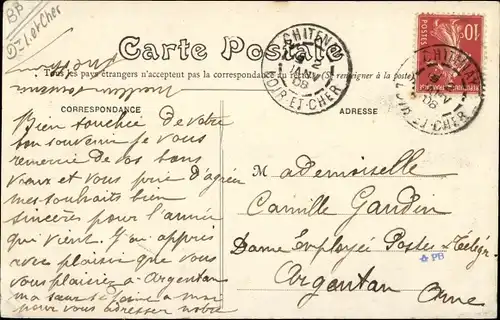 BB
DZ L.etCher
Carte Postale
Tous les pays étrangers n'acceptent pas la correspondance au recto (Se renseigner à la poste)
CHITENAY
LOIR-ET-CHER
08
10
POSTES
CHITENAY
LOIR-ET-CHER
08
CORRESPONDANCE
ADRESSE
Bien touchée de votre
bon souvenir je vous
remercie de vos bons
vœux et vous prie d'agréer
mes souhaits bien
sincères pour l'année
qui vient. J'ai appris
avec plaisir que vous
vous plaisiez à Argentan
ma sœur se joint à moi
pour vous adresser notre
Mademoiselle
Camille Gandin
Dame Employée Postes-Télégr.
☆ PB
Argentan
Orne